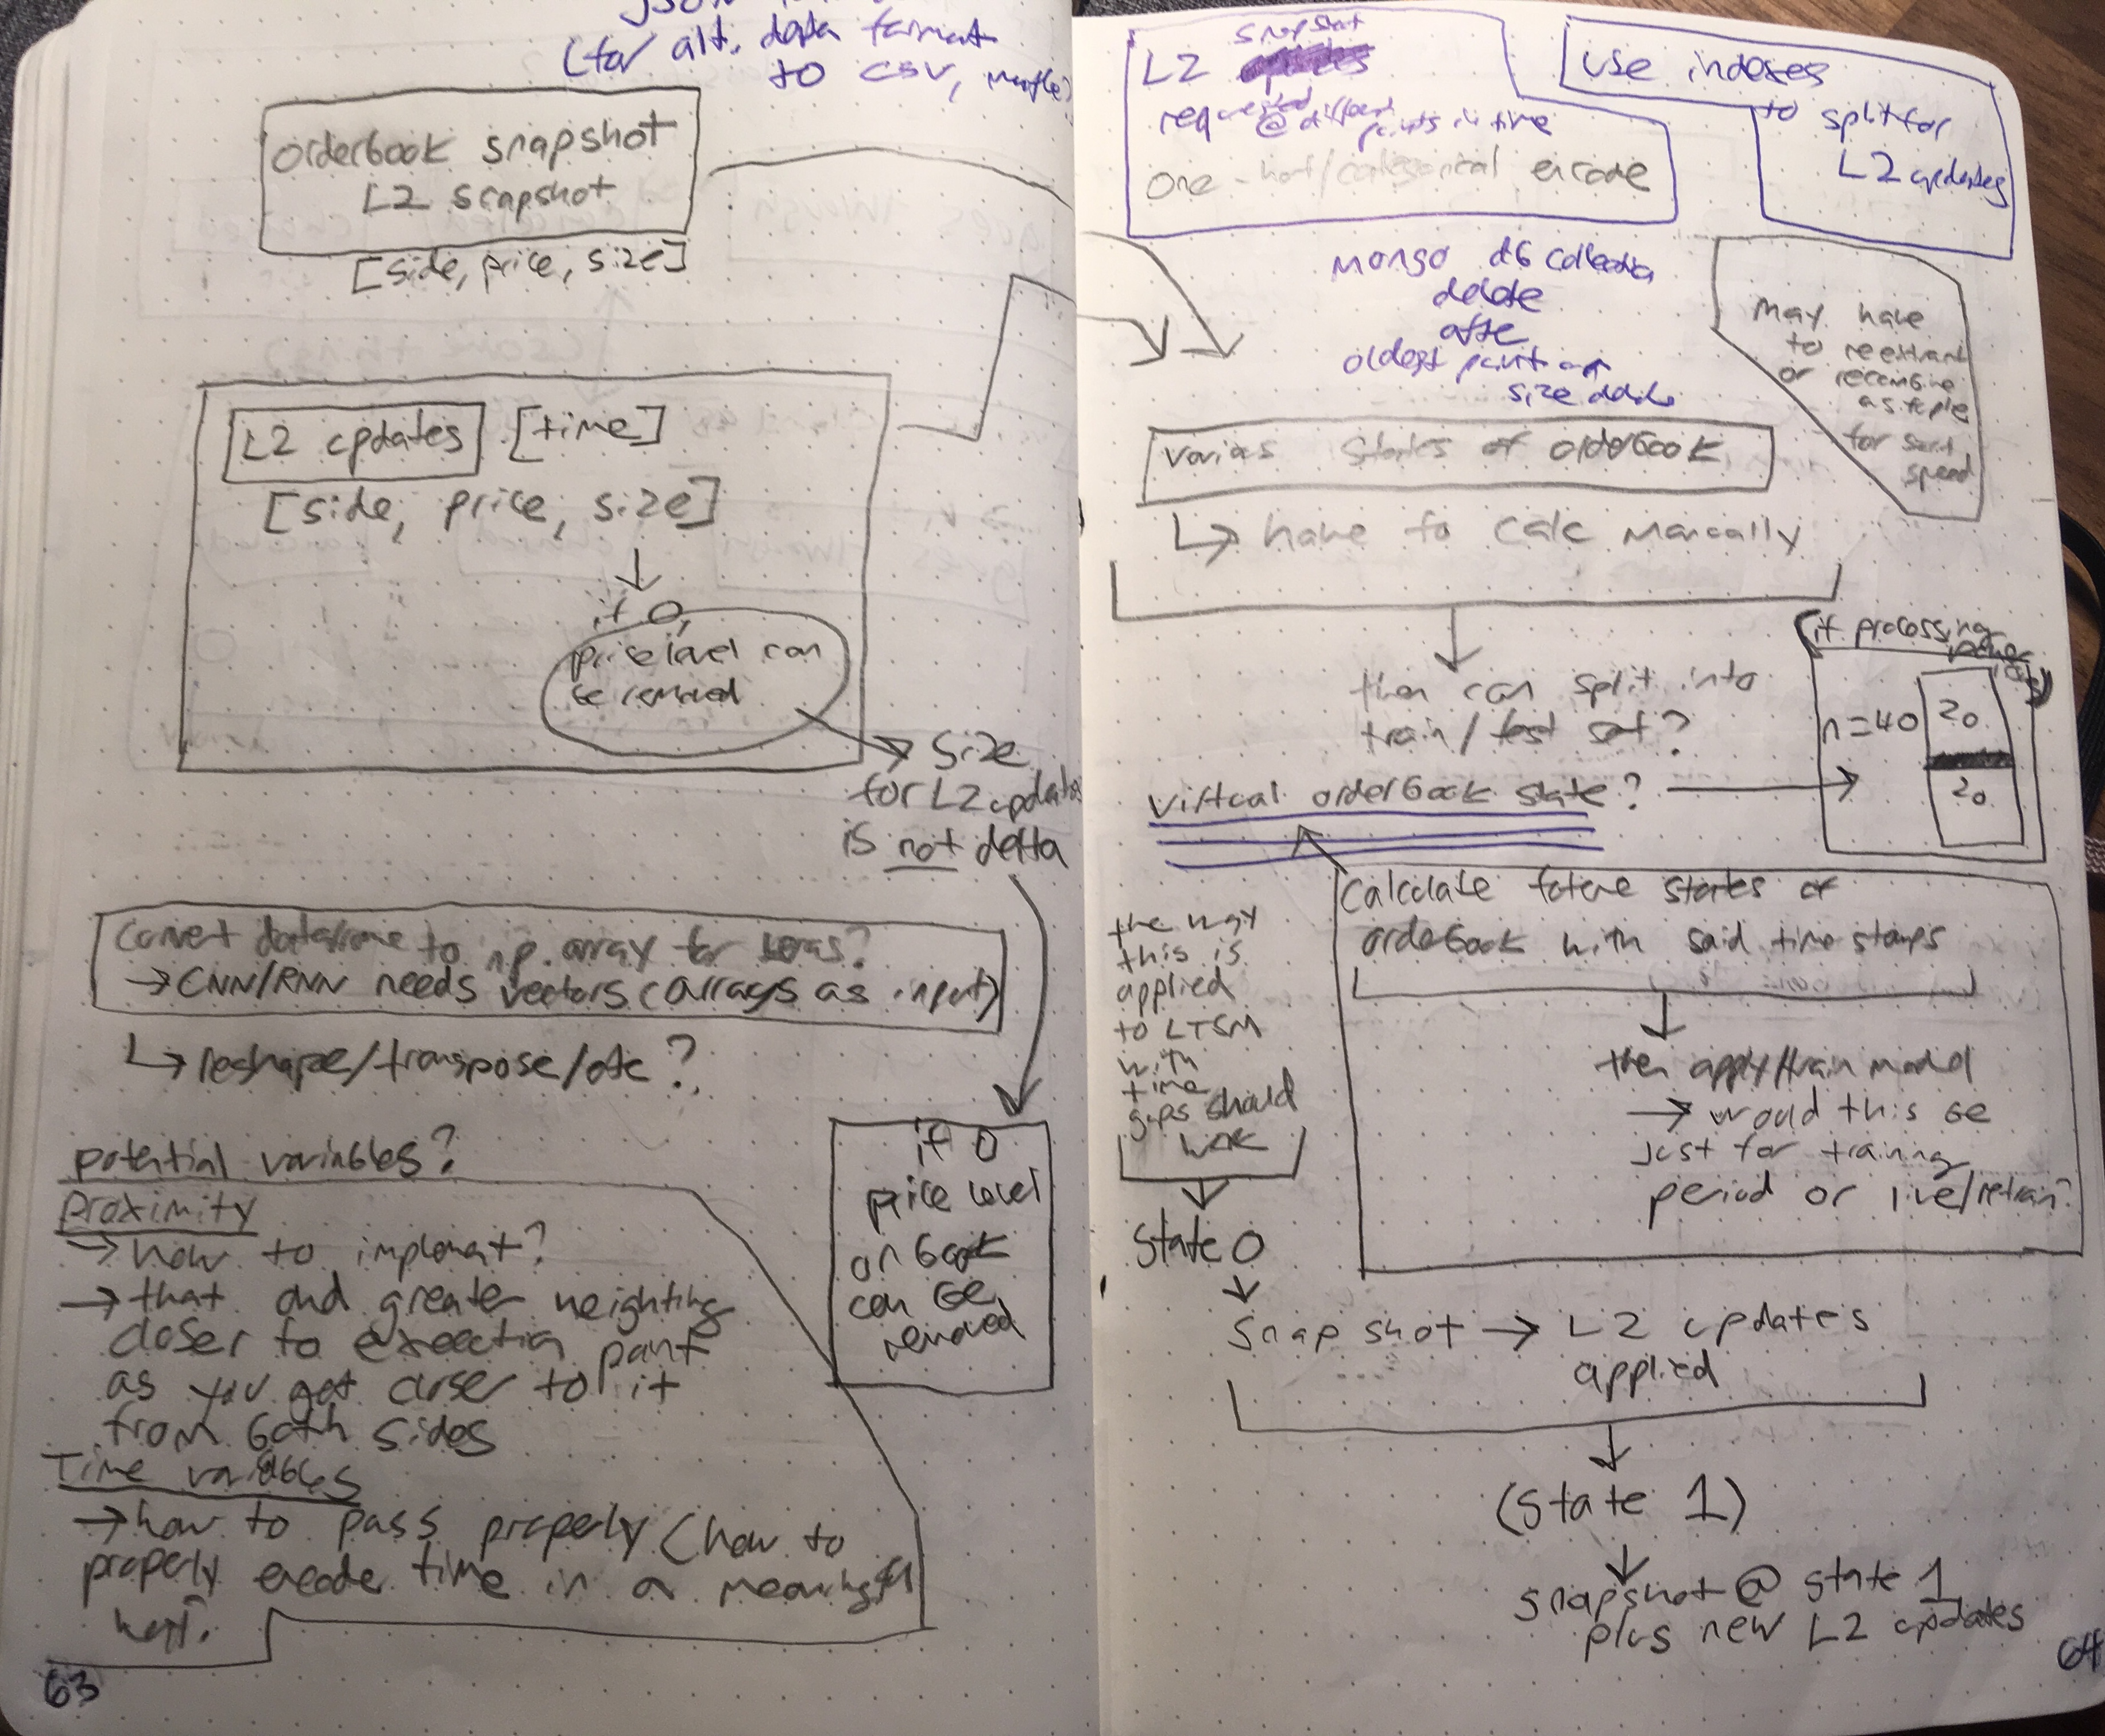 JSON
(for alt. data format
to CSV,
orderbook snapshot
L2 scapshot
[side, price, size]
L2 updates [time]
[side, price, size]
if 0,
price level can
be removed
size
for L2 updates
is not delta
convert dataframe to np.array for keras?
→ CNN/RNN needs vectors (arrays as input)
↳ reshape/transpose/etc?
if 0
price level
on book
can be
removed
potential variables?
Proximity
→ how to implement?
→ that and greater weighting
closer to execution point
as you get closer to it
from both sides
Time variables
→ how to pass properly (how to
properly encode time in a meaningful
way?
63
L2 snapshot
requested @ different
points in time
one-hot/categorical encode
use indexes
to split for
L2 updates
mongo db collection
delete
after
oldest point or
size
may have
to reextract
or recombine
as tuple
for
speed
various states of orderbook
↳ have to calc manually
then can split into
train/test set?
(if processing
power
n=40
20
20
virtual orderbook state?
calculate future states of
orderbook with said timestamps
then apply/train model
→ would this be
just for training
period or live/retrain?
the way
this is
applied
to LTSM
with
time
gaps should
work
state 0
snapshot → L2 updates
applied
(state 1)
snapshot @ state 1
plus new L2 updates
64